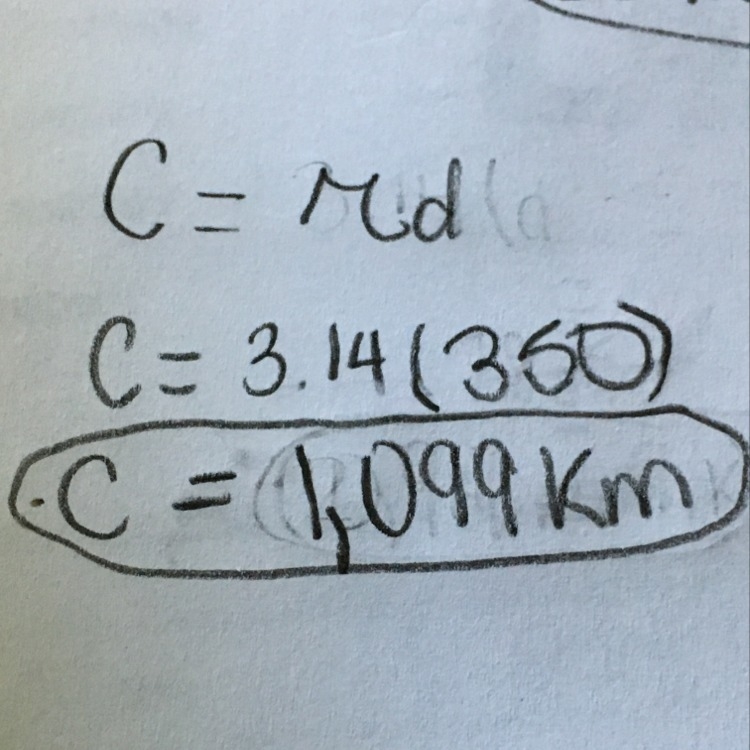 C = πd
C = 3.14(350)
C = 1,099 Km